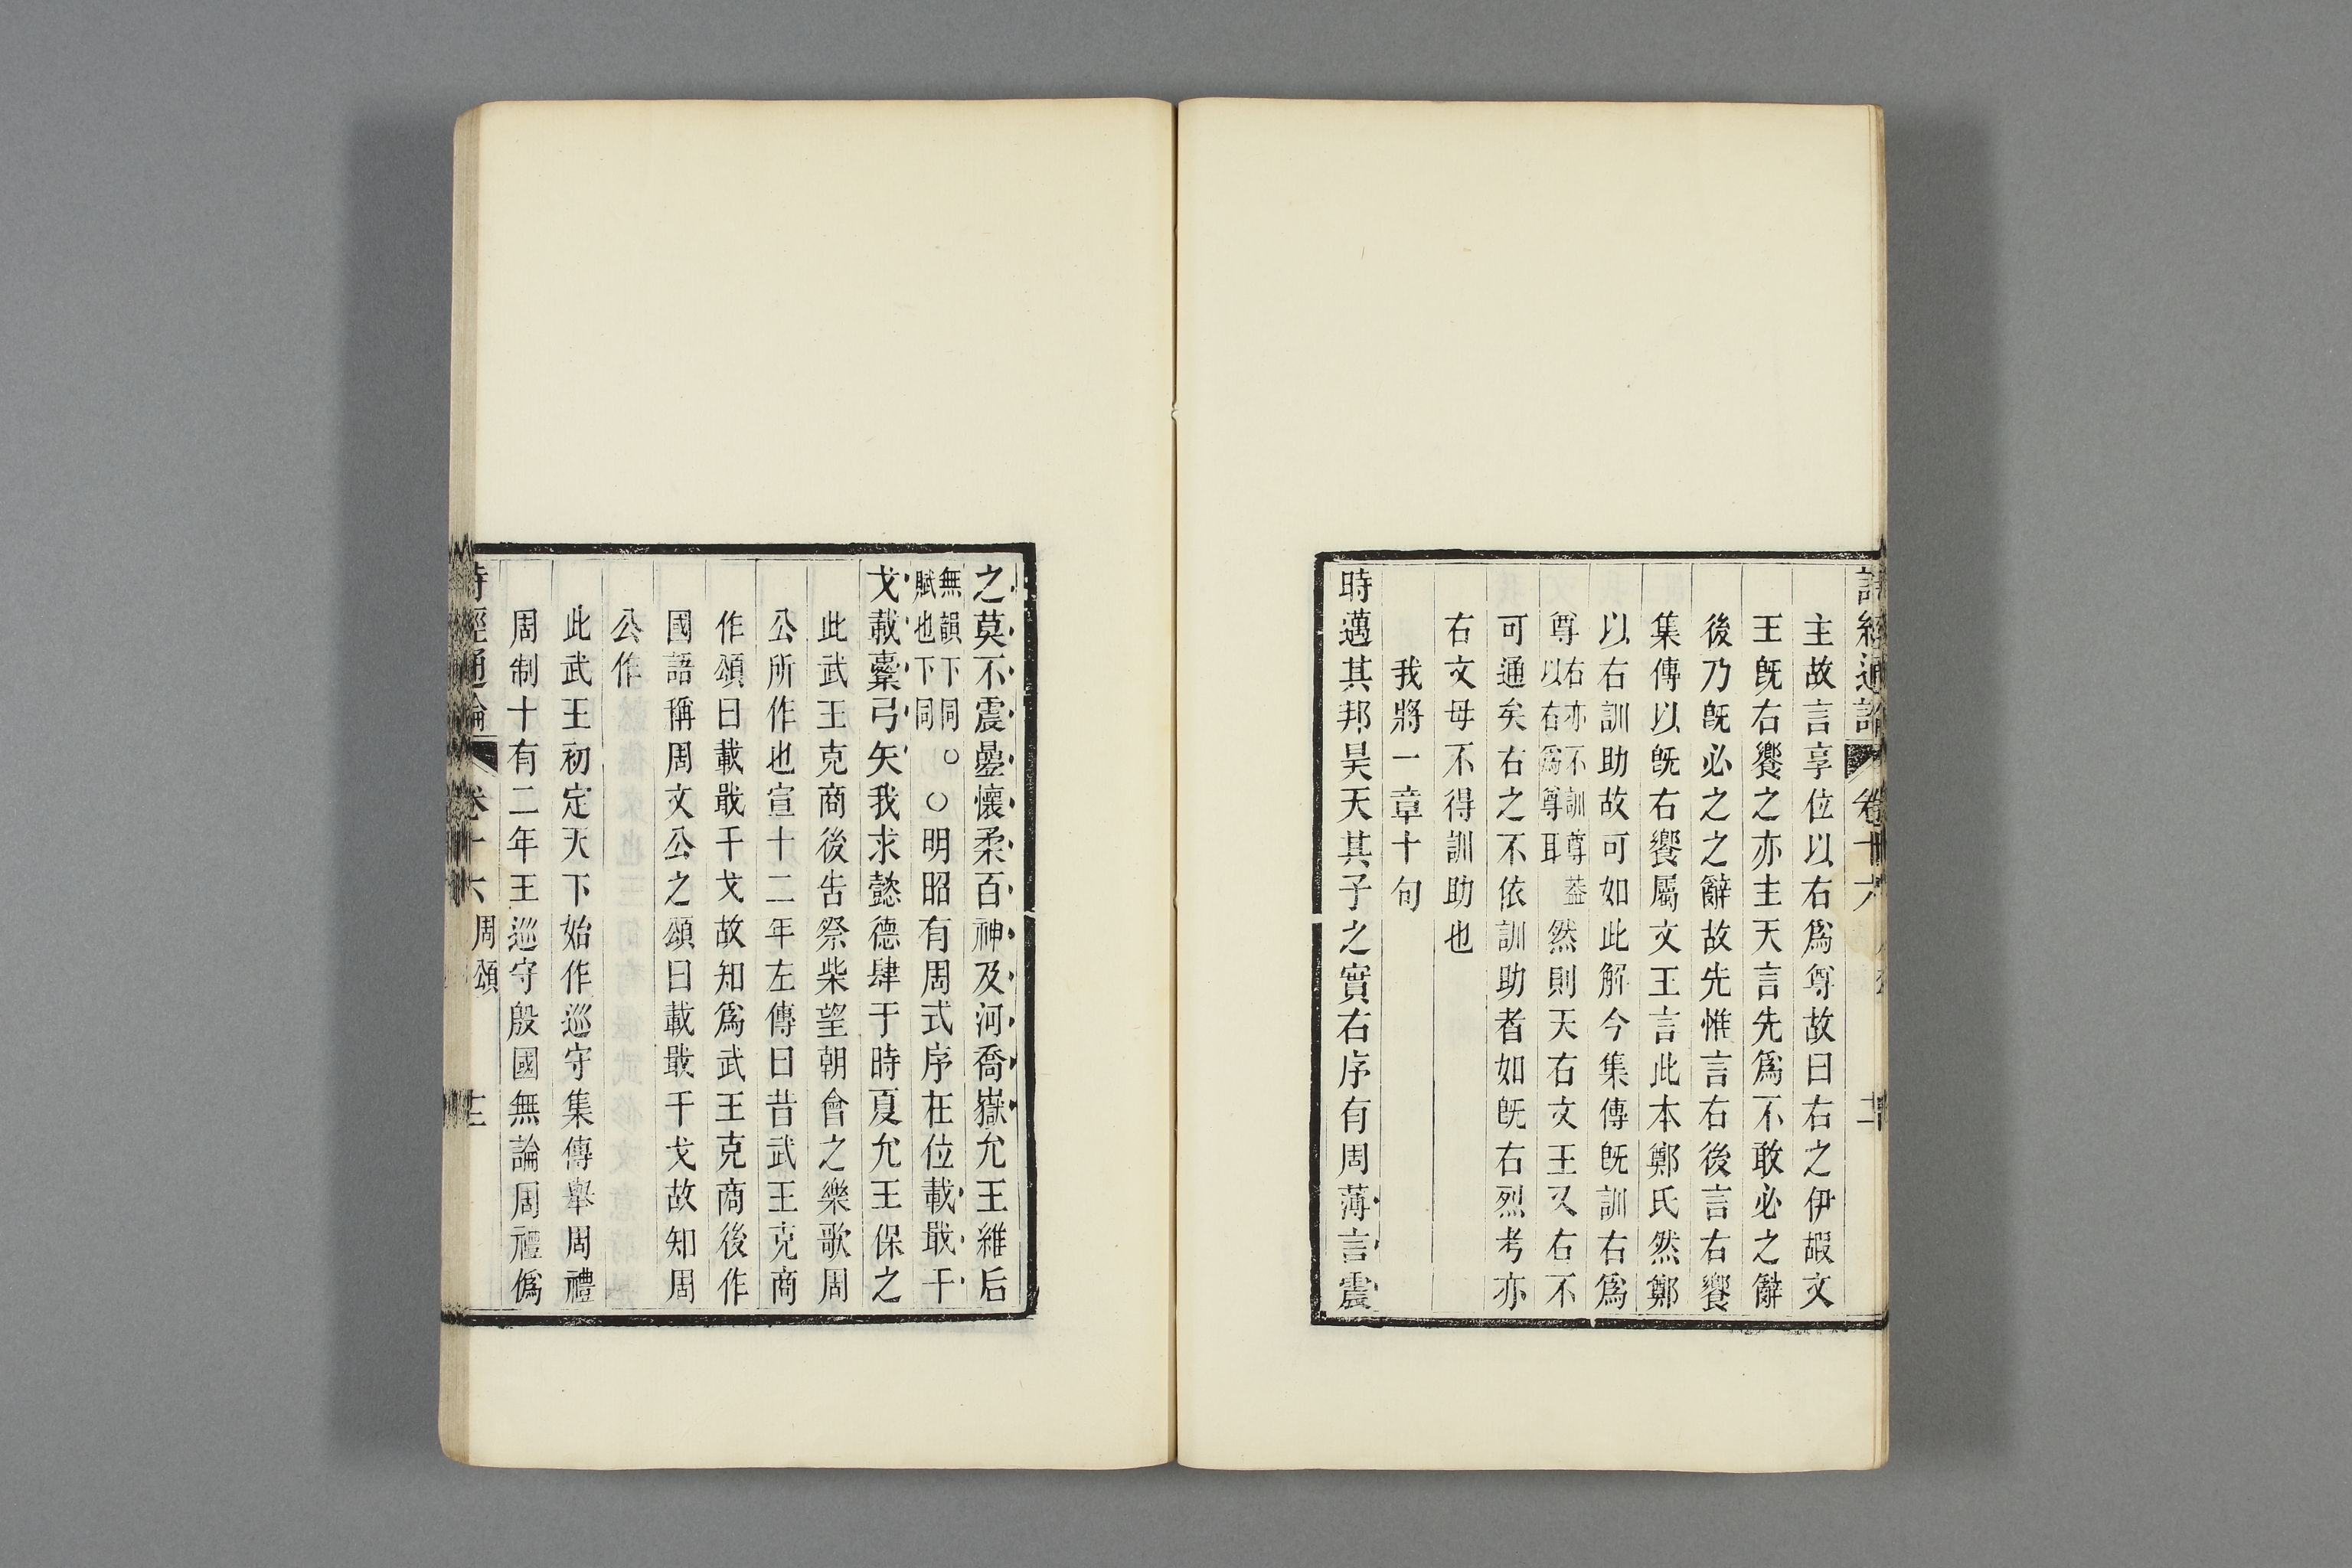 主故言享位以右爲尊故曰右之伊嘏文
王既右饗之亦主天言先爲不敢必之辭
後乃既必之之辭故先惟言右後言右饗
集傳以既右饗屬文王言此本鄭氏然鄭
以右訓助故可如此解今集傳既訓右爲
尊右亦不訓尊葢以右爲尊耳然則天右文王又右不
可通矣右之不依訓助者如既右烈考亦
右文母不得訓助也
我將一章十句
時邁其邦昊天其子之實右序有周薄言震
之莫不震曡懷柔百神及河喬嶽允王維后
無韻下同○賦也下同○明昭有周式序在位載戢干
戈載櫜弓矢我求懿德肆于時夏允王保之
此武王克商後告祭柴望朝會之樂歌周
公所作也宣十二年左傳曰昔武王克商
作頌曰載戢干戈故知爲武王克商後作
國語稱周文公之頌曰載戢干戈故知周
公作
此武王初定天下始作巡守集傳舉周禮
周制十有二年王巡守殷國無論周禮僞
詩經通論 卷十六 周頌